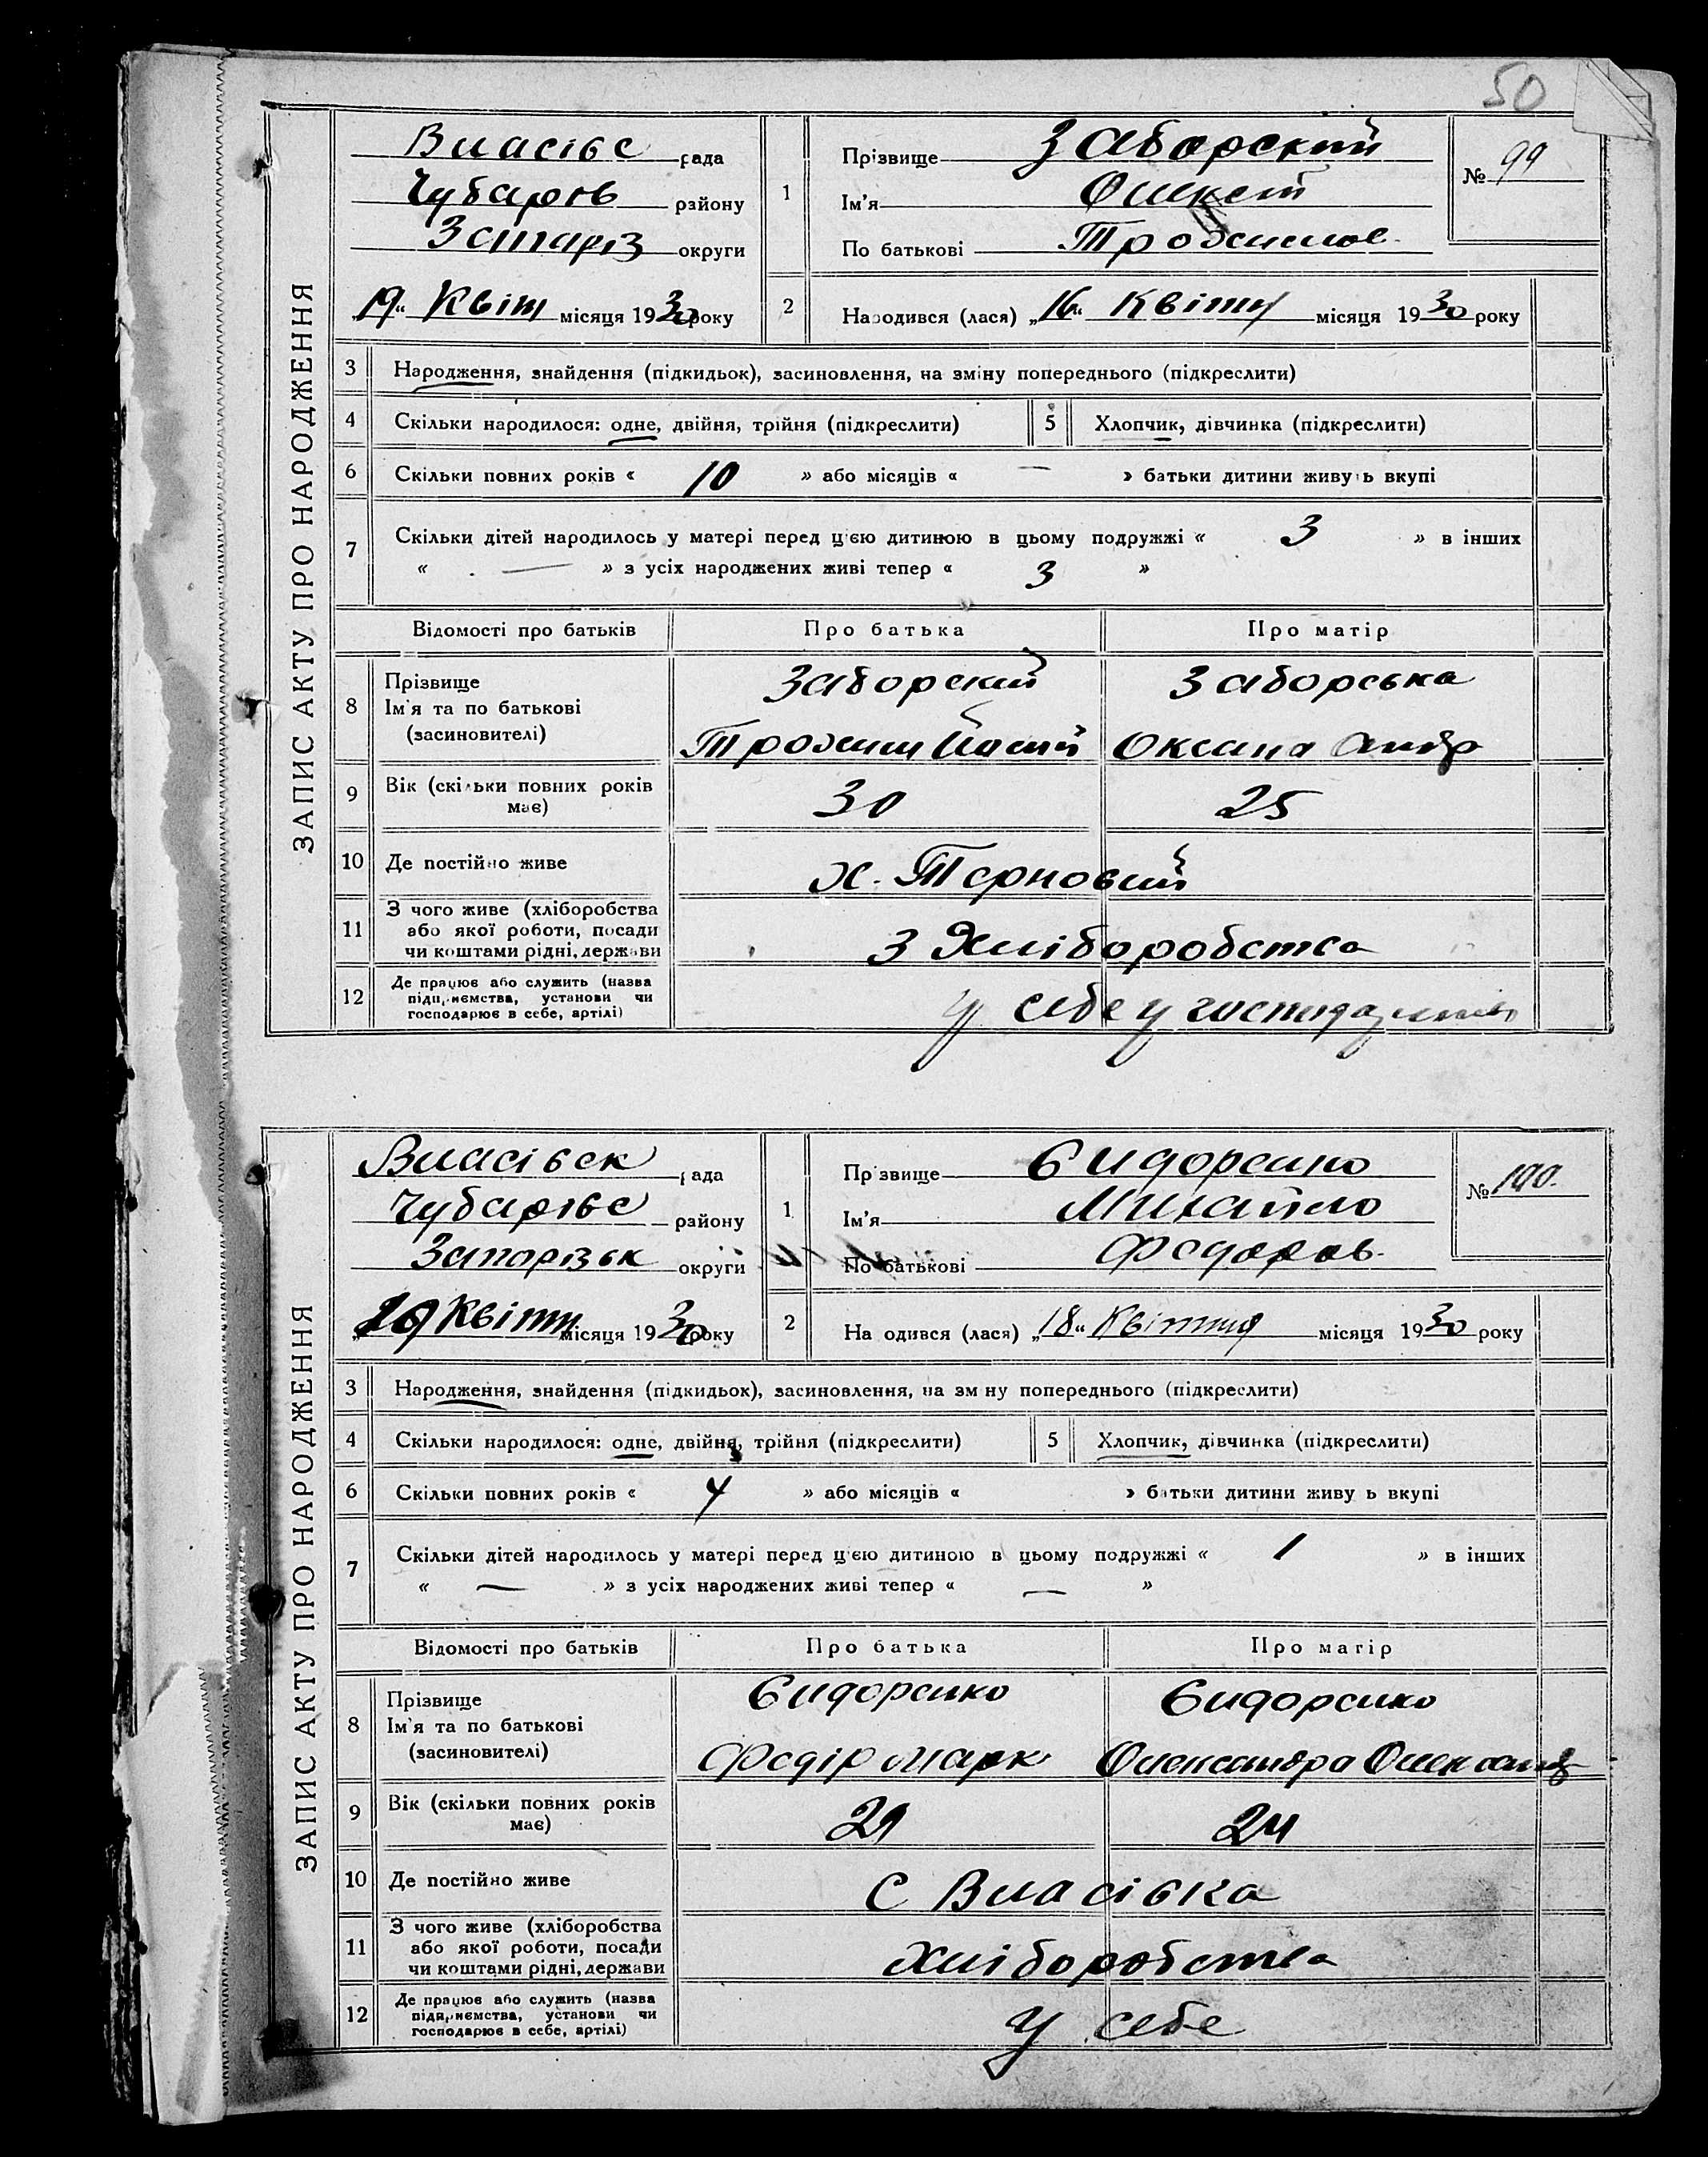 50
ЗАПИС АКТУ ПРО НАРОДЖЕННЯ
Власівс рада
Чубарів району
Запоріз округи
„19“ Квіт місяця 1930 року
1
Прізвище Заборский
Ім'я Олксій
По батькові Трохимов
№ 99
2
Народився (лася) „16“ Квітн місяця 1930 року
3 Народження, знайдення (підкидьок), засиновлення, на зміну попереднього (підкреслити)
4 Скільки народилося: одне, двійня, трійня (підкреслити)
5 Хлопчик, дівчинка (підкреслити)
6 Скільки повних років « 10 » або місяців « — » батьки дитини живуть вкупі
7 Скільки дітей народилось у матері перед цією дитиною в цьому подружжі « 3 » в інших
« — » з усіх народжених живі тепер « 3 »
Відомості про батьків Про батька Про матір
8 Прізвище
Ім'я та по батькові
(засновителі)
Заборский
Трохим
Заборська
Оксана Андр
9 Вік (скільки повних років
має)
30 25
10 Де постійно живе х. Терновий
11 З чого живе (хліборобства
або якої роботи, посади
чи коштами рідні, держави
З Хліборобства
12 Де працює або служить (назва
підприємства, установи чи
господарює в себе, артілі)
у себе у господарстві
ЗАПИС АКТУ ПРО НАРОДЖЕННЯ
Власівск рада
Чубарівс району
Запорізьк округи
„19 Квітн місяця 1930 року
1
Прізвище Сидоренко
Ім'я Михайло
По батькові Федоров
№ 100.
2
Народився (лася) „18“ Квітня місяця 1930 року
3 Народження, знайдення (підкидьок), засиновлення, на зміну попереднього (підкреслити)
4 Скільки народилося: одне, двійня, трійня (підкреслити)
5 Хлопчик, дівчинка (підкреслити)
6 Скільки повних років « 4 » або місяців « » батьки дитини живуть вкупі
7 Скільки дітей народилось у матері перед цією дитиною в цьому подружжі « 1 » в інших
« — » з усіх народжених живі тепер « — »
Відомості про батьків Про батька Про матір
8 Прізвище
Ім'я та по батькові
(засиновителі)
Сидоренко
Федір Марк
Сидоренко
Олександра Олександ
9 Вік (скільки повних років
має)
29 24
10 Де постійно живе С Власівка
11 З чого живе (хліборобства
або якої роботи, посади
чи коштами рідні, держави
Хліборобства
12 Де працює або служить (назва
підприємства, установи чи
господарює в себе, артілі)
у себе